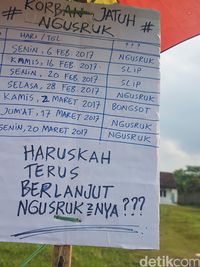 # KORBAN JATUH #
NGUSRUK
HARI/TGL ???
SENIN, 6 FEB. 2017 NGUSRUK
KAMIS, 16 FEB. 2017 SLIP
SENIN, 20 FEB. 2017 SLIP
SELASA, 28 FEB. 2017 NGUSRUK
KAMIS, 2 MARET 2017 BONGSOT
JUM'AT, 17 MARET 2017 NGUSRUK
SENIN, 20 MARET 2017 NGUSRUK
HARUSKAH
TERUS
BERLANJUT
NGUSRUK2NYA ???
detikcom